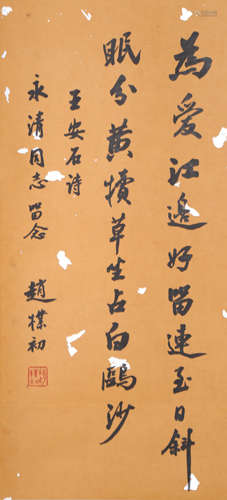 為愛江邊好留連至日斜
眠分黃犢草坐占白鷗沙
王安石詩
永清同志留念
趙樸初